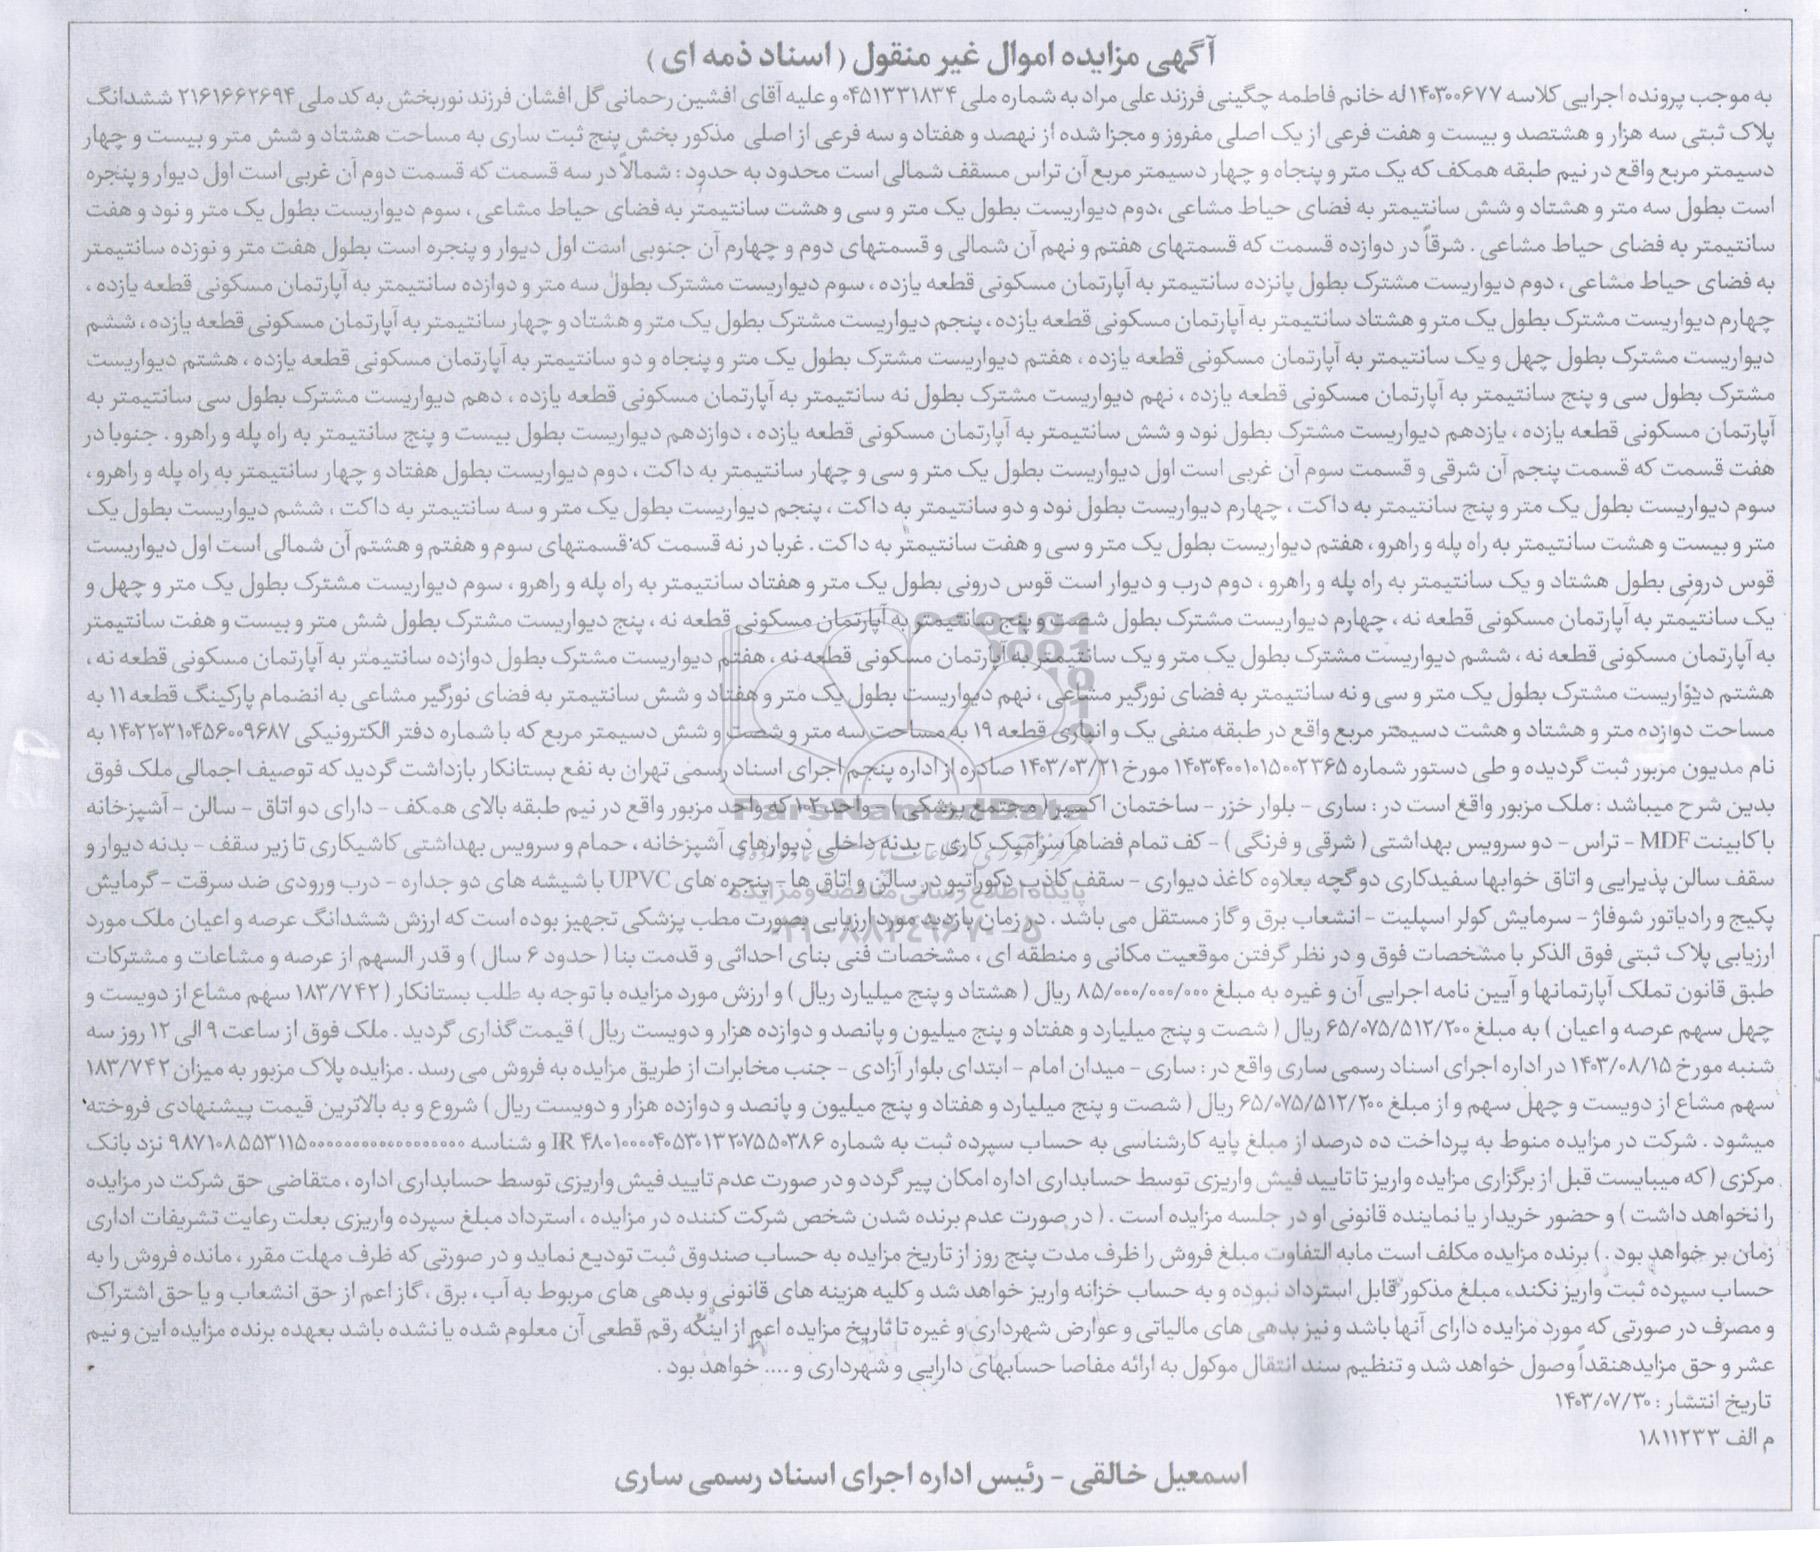 آگهی مزایده اموال غیر منقول ( اسناد ذمه ای )
به موجب پرونده اجرایی کلاسه ۱۴۰۳۰۰۶۷۷ له خانم فاطمه چگینی فرزند علی مراد به شماره ملی ۰۴۵۱۳۳۱۸۳۴ و علیه آقای افشین رحمانی گل افشان فرزند نوربخش به کد ملی ۲۱۶۱۶۶۲۶۹۴ ششدانگ
پلاک ثبتی سه هزار و هشتصد و بیست و هفت فرعی از یک اصلی مفروز و مجزا شده از نهصد و هفتاد و سه فرعی از اصلی مذکور بخش پنج ثبت ساری به مساحت هشتاد و شش متر و بیست و چهار
دسیمتر مربع واقع در نیم طبقه همکف که یک متر و پنجاه و چهار دسیمتر مربع آن تراس مسقف شمالی است محدود به حدود : شمالاً در سه قسمت که قسمت دوم آن غربی است اول دیوار و پنجره
است بطول سه متر و هشتاد و شش سانتیمتر به فضای حیاط مشاعی ،دوم دیواریست بطول یک متر و سی و هشت سانتیمتر به فضای حیاط مشاعی ، سوم دیواریست بطول یک متر و نود و هفت
سانتیمتر به فضای حیاط مشاعی . شرقاً در دوازده قسمت که قسمتهای هفتم و نهم آن شمالی و قسمتهای دوم و چهارم آن جنوبی است اول دیوار و پنجره است بطول هفت متر و نوزده سانتیمتر
به فضای حیاط مشاعی ، دوم دیواریست مشترک بطول پانزده سانتیمتر به آپارتمان مسکونی قطعه یازده ، سوم دیواریست مشترک بطول سه متر و دوازده سانتیمتر به آپارتمان مسکونی قطعه یازده ،
چهارم دیواریست مشترک بطول یک متر و هشتاد سانتیمتر به آپارتمان مسکونی قطعه یازده ، پنجم دیواریست مشترک بطول یک متر و هشتاد و چهار سانتیمتر به آپارتمان مسکونی قطعه یازده ، ششم
دیواریست مشترک بطول چهل و یک سانتیمتر به آپارتمان مسکونی قطعه یازده ، هفتم دیواریست مشترک بطول یک متر و پنجاه و دو سانتیمتر به آپارتمان مسکونی قطعه یازده ، هشتم دیواریست
مشترک بطول سی و پنج سانتیمتر به آپارتمان مسکونی قطعه یازده ، نهم دیواریست مشترک بطول نه سانتیمتر به آپارتمان مسکونی قطعه یازده ، دهم دیواریست مشترک بطول سی سانتیمتر به
آپارتمان مسکونی قطعه یازده ، یازدهم دیواریست مشترک بطول نود و شش سانتیمتر به آپارتمان مسکونی قطعه یازده ، دوازدهم دیواریست بطول بیست و پنج سانتیمتر به راه پله و راهرو . جنوبا در
هفت قسمت که قسمت پنجم آن شرقی و قسمت سوم آن غربی است اول دیواریست بطول یک متر و سی و چهار سانتیمتر به داکت ، دوم دیواریست بطول هفتاد و چهار سانتیمتر به راه پله و راهرو ،
سوم دیواریست بطول یک متر و پنج سانتیمتر به داکت ، چهارم دیواریست بطول نود و دو سانتیمتر به داکت ، پنجم دیواریست بطول یک متر و سه سانتیمتر به داکت ، ششم دیواریست بطول یک
متر و بیست و هشت سانتیمتر به راه پله و راهرو ، هفتم دیواریست بطول یک متر و سی و هفت سانتیمتر به داکت . غربا در نه قسمت که قسمتهای سوم و هفتم و هشتم آن شمالی است اول دیواریست
قوس درونی بطول هشتاد و یک سانتیمتر به راه پله و راهرو ، دوم درب و دیوار است قوس درونی بطول یک متر و هفتاد سانتیمتر به راه پله و راهرو ، سوم دیواریست مشترک بطول یک متر و چهل و
یک سانتیمتر به آپارتمان مسکونی قطعه نه ، چهارم دیواریست مشترک بطول شصت و پنج سانتیمتر به آپارتمان مسکونی قطعه نه ، پنج دیواریست مشترک بطول شش متر و بیست و هفت سانتیمتر
به آپارتمان مسکونی قطعه نه ، ششم دیواریست مشترک بطول یک متر و یک سانتیمتر به آپارتمان مسکونی قطعه نه ، هفتم دیواریست مشترک بطول دوازده سانتیمتر به آپارتمان مسکونی قطعه نه ،
هشتم دیواریست مشترک بطول یک متر و سی و نه سانتیمتر به فضای نورگیر مشاعی ، نهم دیواریست بطول یک متر و هفتاد و شش سانتیمتر به فضای نورگیر مشاعی به انضمام پارکینگ قطعه ۱۱ به
مساحت دوازده متر و هشتاد و هشت دسیمتر مربع واقع در طبقه منفی یک و انباری قطعه ۱۹ به مساحت سه متر و شصت و شش دسیمتر مربع که با شماره دفتر الکترونیکی ۱۴۰۲۲۰۳۱۰۴۵۶۰۰۹۶۸۷ به
نام مدیون مزبور ثبت گردیده و طی دستور شماره ۱۴۰۳۰۴۰۰۱۰۱۵۰۰۲۳۶۵ مورخ ۱۴۰۳/۰۳/۲۱ صادره از اداره پنجم اجرای اسناد رسمی تهران به نفع بستانکار بازداشت گردید که توصیف اجمالی ملک فوق
بدین شرح میباشد : ملک مزبور واقع است در : ساری - بلوار خزر - ساختمان اکسیر ( مجتمع پزشکی ) - واحد ۱۰۲ که واحد مزبور واقع در نیم طبقه بالای همکف - دارای دو اتاق - سالن - آشپزخانه
با کابینت MDF - تراس - دو سرویس بهداشتی ( شرقی و فرنگی ) - کف تمام فضاها سرامیک کاری - بدنه داخلی دیوارهای آشپزخانه ، حمام و سرویس بهداشتی کاشیکاری تا زیر سقف - بدنه دیوار و
سقف سالن پذیرایی و اتاق خوابها سفیدکاری دو گچه بعلاوه کاغذ دیواری - سقف کاذب دکوراتیو در سالن و اتاق ها - پنجره های UPVC با شیشه های دو جداره - درب ورودی ضد سرقت - گرمایش
پکیج و رادیاتور شوفاژ - سرمایش کولر اسپلیت - انشعاب برق و گاز مستقل می باشد . در زمان بازدید مورد ارزیابی بصورت مطب پزشکی تجهیز بوده است که ارزش ششدانگ عرصه و اعیان ملک مورد
ارزیابی پلاک ثبتی فوق الذکر با مشخصات فوق و در نظر گرفتن موقعیت مکانی و منطقه ای ، مشخصات فنی بنای احداثی و قدمت بنا ( حدود ۶ سال ) و قدر السهم از عرصه و مشاعات و مشترکات
طبق قانون تملک آپارتمانها و آیین نامه اجرایی آن و غیره به مبلغ ۸۵/۰۰۰/۰۰۰/۰۰۰ ریال ( هشتاد و پنج میلیارد ریال ) و ارزش مورد مزایده با توجه به طلب بستانکار ( ۱۸۳/۷۴۲ سهم مشاع از دویست و
چهل سهم عرصه و اعیان ) به مبلغ ۶۵/۰۷۵/۵۱۲/۲۰۰ ریال ( شصت و پنج میلیارد و هفتاد و پنج میلیون و پانصد و دوازده هزار و دویست ریال ) قیمت گذاری گردید . ملک فوق از ساعت ۹ الی ۱۲ روز سه
شنبه مورخ ۱۴۰۳/۰۸/۱۵ در اداره اجرای اسناد رسمی ساری واقع در : ساری - میدان امام - ابتدای بلوار آزادی - جنب مخابرات از طریق مزایده به فروش می رسد . مزایده پلاک مزبور به میزان ۱۸۳/۷۴۲
سهم مشاع از دویست و چهل سهم و از مبلغ ۶۵/۰۷۵/۵۱۲/۲۰۰ ریال ( شصت و پنج میلیارد و هفتاد و پنج میلیون و پانصد و دوازده هزار و دویست ریال ) شروع و به بالاترین قیمت پیشنهادی فروخته
میشود . شرکت در مزایده منوط به پرداخت ده درصد از مبلغ پایه کارشناسی به حساب سپرده ثبت به شماره IR ۴۸۰۱۰۰۰۰۴۰۵۳۰۱۳۲۰۷۵۵۰۳۸۶ و شناسه نزد بانک
مرکزی ( که میبایست قبل از برگزاری مزایده واریز تا تایید فیش واریزی توسط حسابداری اداره امکان پیر گردد و در صورت عدم تایید فیش واریزی توسط حسابداری اداره ، متقاضی حق شرکت در مزایده
را نخواهد داشت ) و حضور خریدار یا نماینده قانونی او در جلسه مزایده است . ( در صورت عدم برنده شدن شخص شرکت کننده در مزایده ، استرداد مبلغ سپرده واریزی بعلت رعایت تشریفات اداری
زمان بر خواهد بود . ) برنده مزایده مکلف است مابه التفاوت مبلغ فروش را ظرف مدت پنج روز از تاریخ مزایده به حساب صندوق ثبت تودیع نماید و در صورتی که ظرف مهلت مقرر ، مانده فروش را به
حساب سپرده ثبت واریز نکند، مبلغ مذکور قابل استرداد نبوده و به حساب خزانه واریز خواهد شد و کلیه هزینه های قانونی و بدهی های مربوط به آب ، برق ، گاز اعم از حق انشعاب و یا حق اشتراک
و مصرف در صورتی که مورد مزایده دارای آنها باشد و نیز بدهی های مالیاتی و عوارض شهرداری و غیره تا تاریخ مزایده اعم از اینکه رقم قطعی آن معلوم شده یا نشده باشد بعهده برنده مزایده این و نیم
عشر و حق مزایدهنقداً وصول خواهد شد و تنظیم سند انتقال موکول به ارائه مفاصا حسابهای دارایی و شهرداری و .... خواهد بود .
تاریخ انتشار : ۱۴۰۳/۰۷/۳۰
م الف ۱۸۱۱۲۳۳
اسمعیل خالقی - رئیس اداره اجرای اسناد رسمی ساری
ParsNamadData
پایگاه اطلاع رسانی مناقصه و مزایده